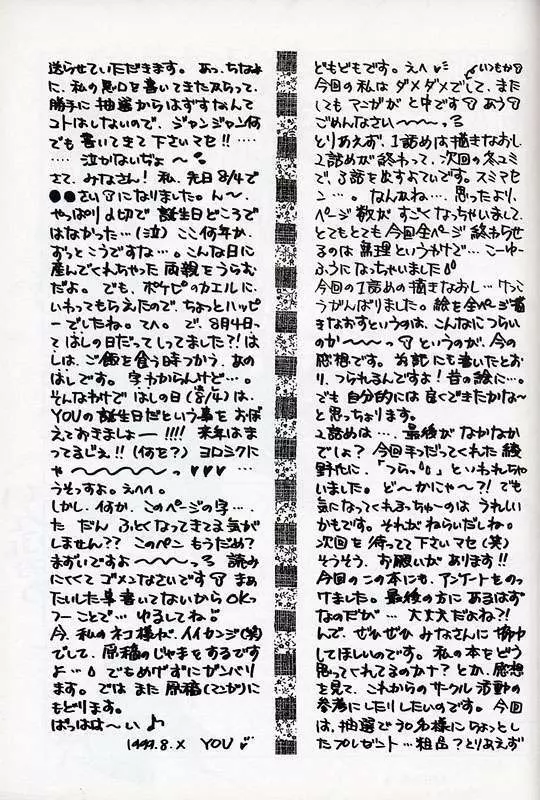 どもどもです。えへ いつもか
今回の私は ダメダメでして、また
しても マンガが と中です あう
ごめんなさい〜〜〜っ
とりあえず、1話めは描きなおし
2話めが 終わって、次回の冬コミ
で、3話を出すよていです。スミマセ
ン…。 なんかね…. 思ったより、
ページ数が すごくなっちゃいまして、
とてもとても 今回全ページ 終わらせ
るのは 無理というわけで…こーゆー
ふうになっちゃいました
今回の1話めの描きなおし… けっこ
うがんばりました。絵を全ページ描
きなおすというのは、こんなにつらい
のか〜〜〜っ というのが、今の
感想です。 にも書いたとお
り、つられるんですよ!昔の絵に…。
でも 自分的には 良くできたかな〜
と思っちょります。
2話めは…. 最後がなかなか
でしょ? 今回手つだってくれた綾
野 に、「つらっ」といわれちゃ
いました。ど〜かにゃ〜?! でも
気になってくれふちゅーのは うれしい
かもです。それが ねらいだしね。
次回を 待ってて 下さいマセ(笑)
そうそう. お願いが あります!!
今回の この本にも、アンケートをのっ
けました。最後の方に あるはず
なのだが … 大丈夫だよね?!
んで、ぜひぜひ みなさんに 
してほしいのです。 私の本をどう
思ってくれてるのかナ? とか、感想
を見て、これからのサークル活動の
参考にしたりしたいのです。今回
は、抽選で30名様にちょっとし
たプレゼント…粗品?とりあえず
送らせていただきます。あっ、ちなみ
に、私の悪口を書いてきたからって、
勝手に抽選からはずすなんて
コトはしないので、ジャンジャン何
でも 書いてきて 下さいマセ!! …
…… 泣かないぢょ〜
さて、みなさん! 私、先日8/4で
●●さいになりました。ん〜、
やっぱり〆切で 誕生日どころで
はなかった…(泣) ここ何年か、
ずっとこうですな…。こんな日に
産んでくれちゃった 両親をうらむ
だよ。でも、ポケピのカエルに、
いわってもらえたので、ちょっとハッピ
ーでしたね。てへ。で、8月4日っ
て はしの日だってしってました?!は
しは、ご飯を食う時つかう、あの
はしです。 字わからんけど…。
そんなわけで はしの日(8/4)は、
YOUの誕生日だという事を おぼ
えておきましょー!!!! 来年はま
ってるじぇ!!(何を?) ヨロシクに
ゃ〜〜〜〜〜〜っ ♥♥♥ …
うそっすよ。えへへ。
しかし、何か、このページの字…、
だんだん ふとくなってきてる気が
しません?? このペン もうだめ?
まずいですよ〜〜〜っ 読み
にくくて ゴメンなさいです まぁ
たいした事書いてないからOKっ
つーことで… ゆるしてね
今、私のネコ様が、イイカンジ(笑)
でして、原稿のじゃまをするです
よ…。でもめげずにガンバリ
ます。 では また 原稿(マンガ)に
もどります。
ばっはは〜い♪
1999.8.X YOU